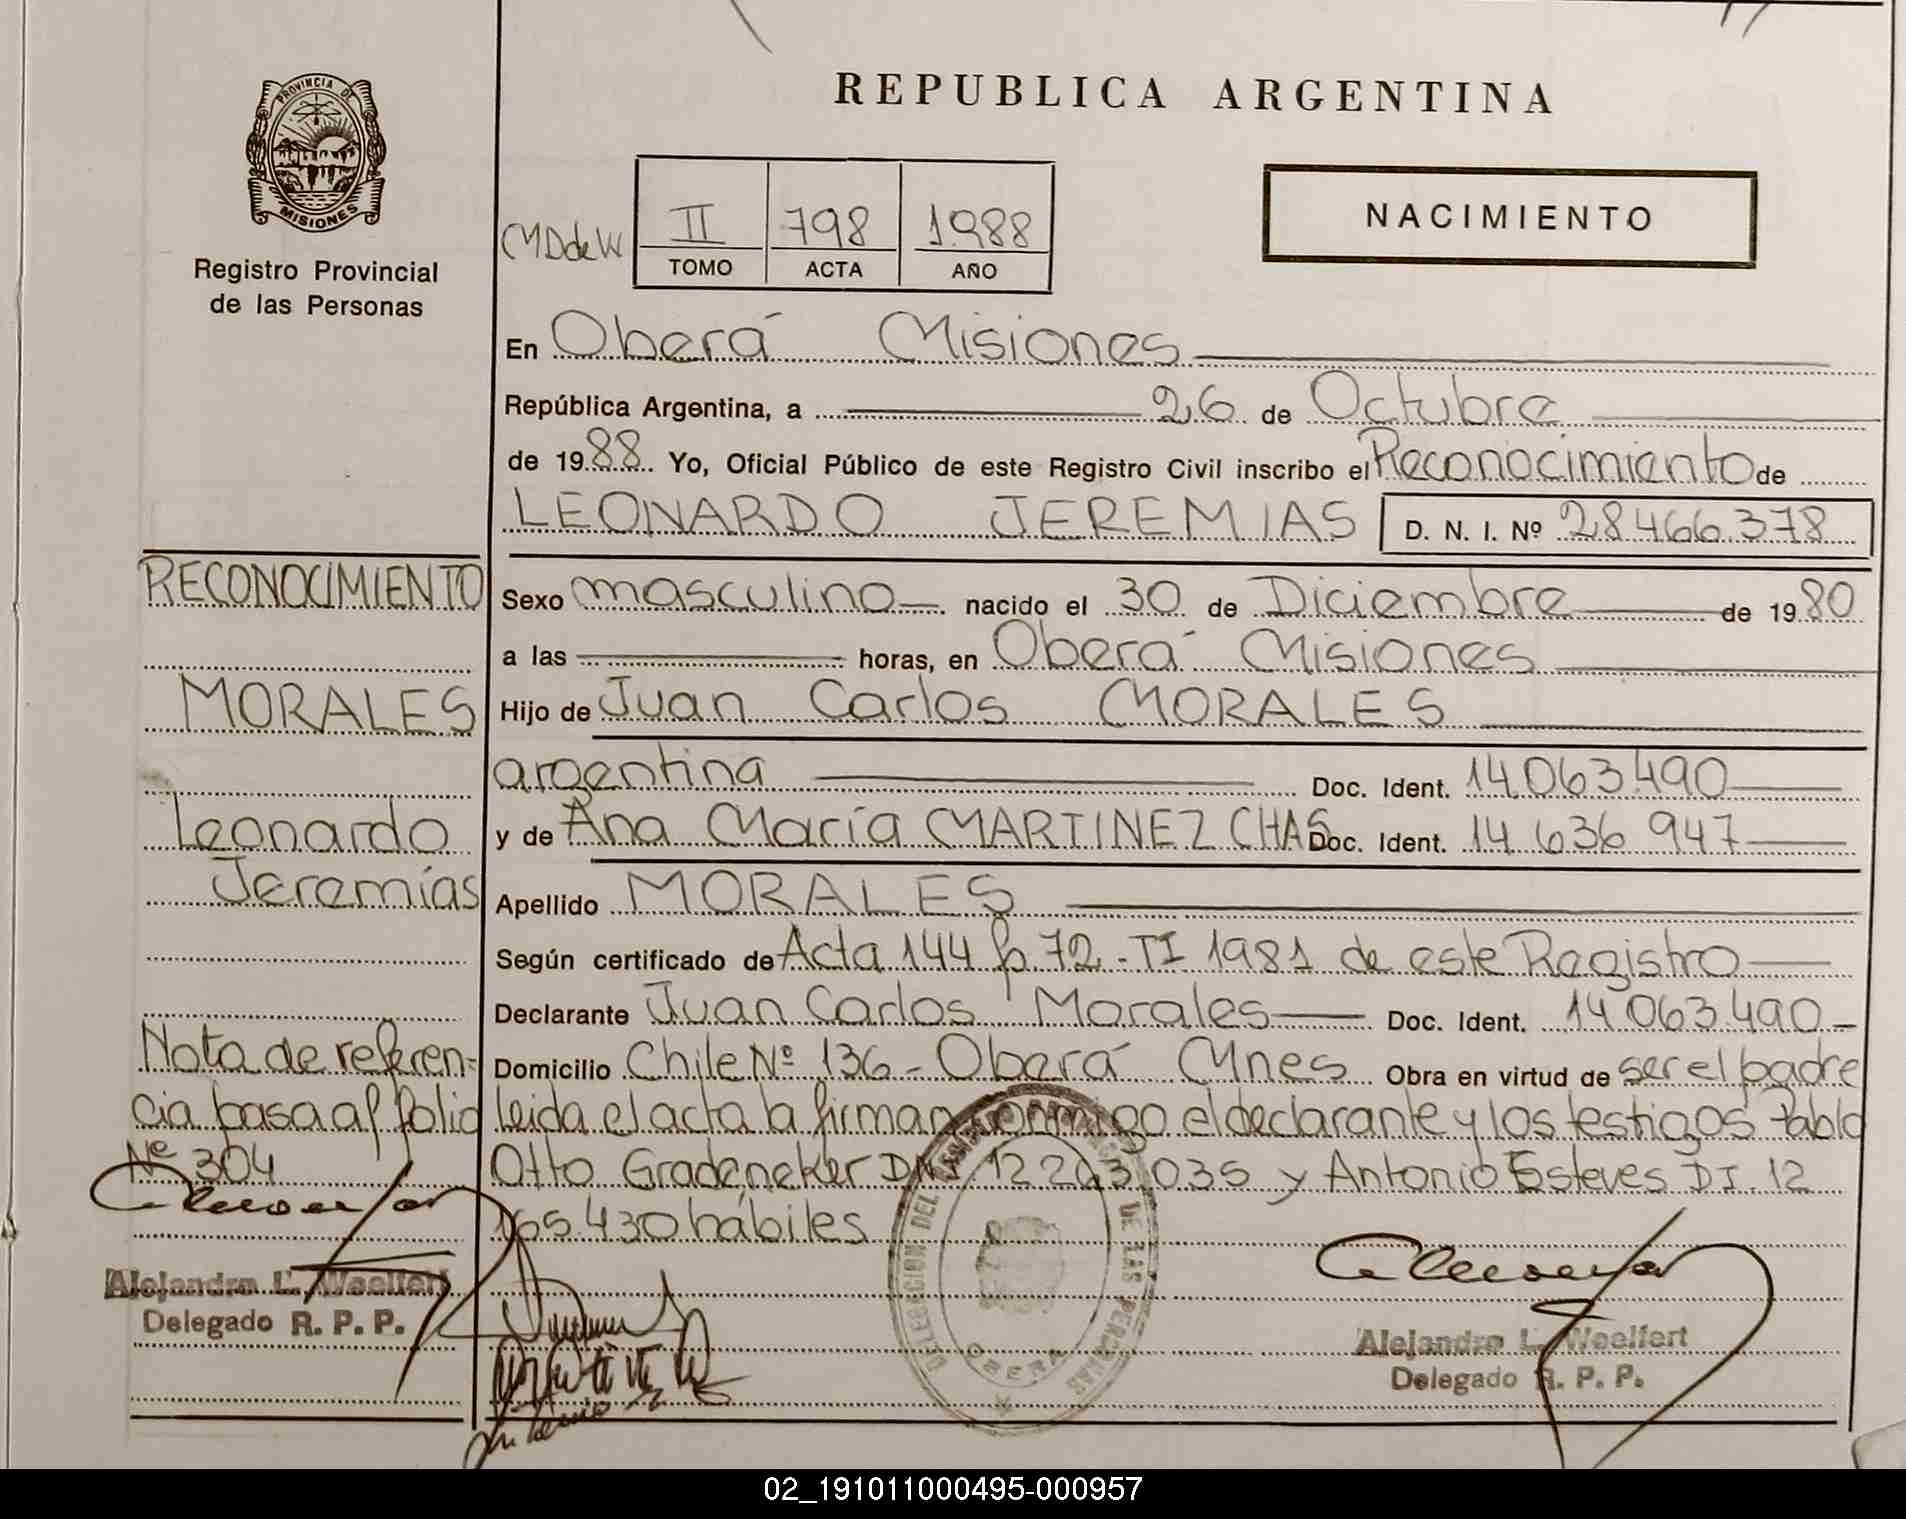 REPUBLICA ARGENTINA
PROVINCIA DE
MISIONES
Registro Provincial
de las Personas
MDdeW
II 798 1988
TOMO ACTA AÑO
NACIMIENTO
En Oberá Misiones
República Argentina, a 26 de Octubre
de 1988 Yo, Oficial Público de este Registro Civil inscribo el Reconocimiento de
LEONARDO JEREMIAS D. N. I. Nº 28466.378
RECONOCIMIENTO
MORALES
Leonardo
Jeremías
Nota de referen-
cia pasa al folio
Nº 304
Alejandro L. Woelfert
Delegado R. P. P.
Sexo masculino nacido el 30 de Diciembre de 1980
a las horas, en Oberá Misiones
Hijo de Juan Carlos MORALES
argentina Doc. Ident. 14.063.490
y de Ana María MARTINEZ CHAS Doc. Ident. 14.636.947
Apellido MORALES
Según certificado de Acta 144 fo 72 - TI 1981 de este Registro
Declarante Juan Carlos Morales Doc. Ident. 14.063.490
Domicilio Chile Nº 136 - Oberá Mnes Obra en virtud de ser el padre
leida el acta la firman conmigo el declarante y los testigos Pablo
Otto DNI 12.203.035 y Antonio Esteves DI. 12
165.430 hábiles
DELEGACION DEL DE LAS PERSONAS
OBERA
Alejandro L. Woelfert
Delegado R. P. P.
02_191011000495-000957